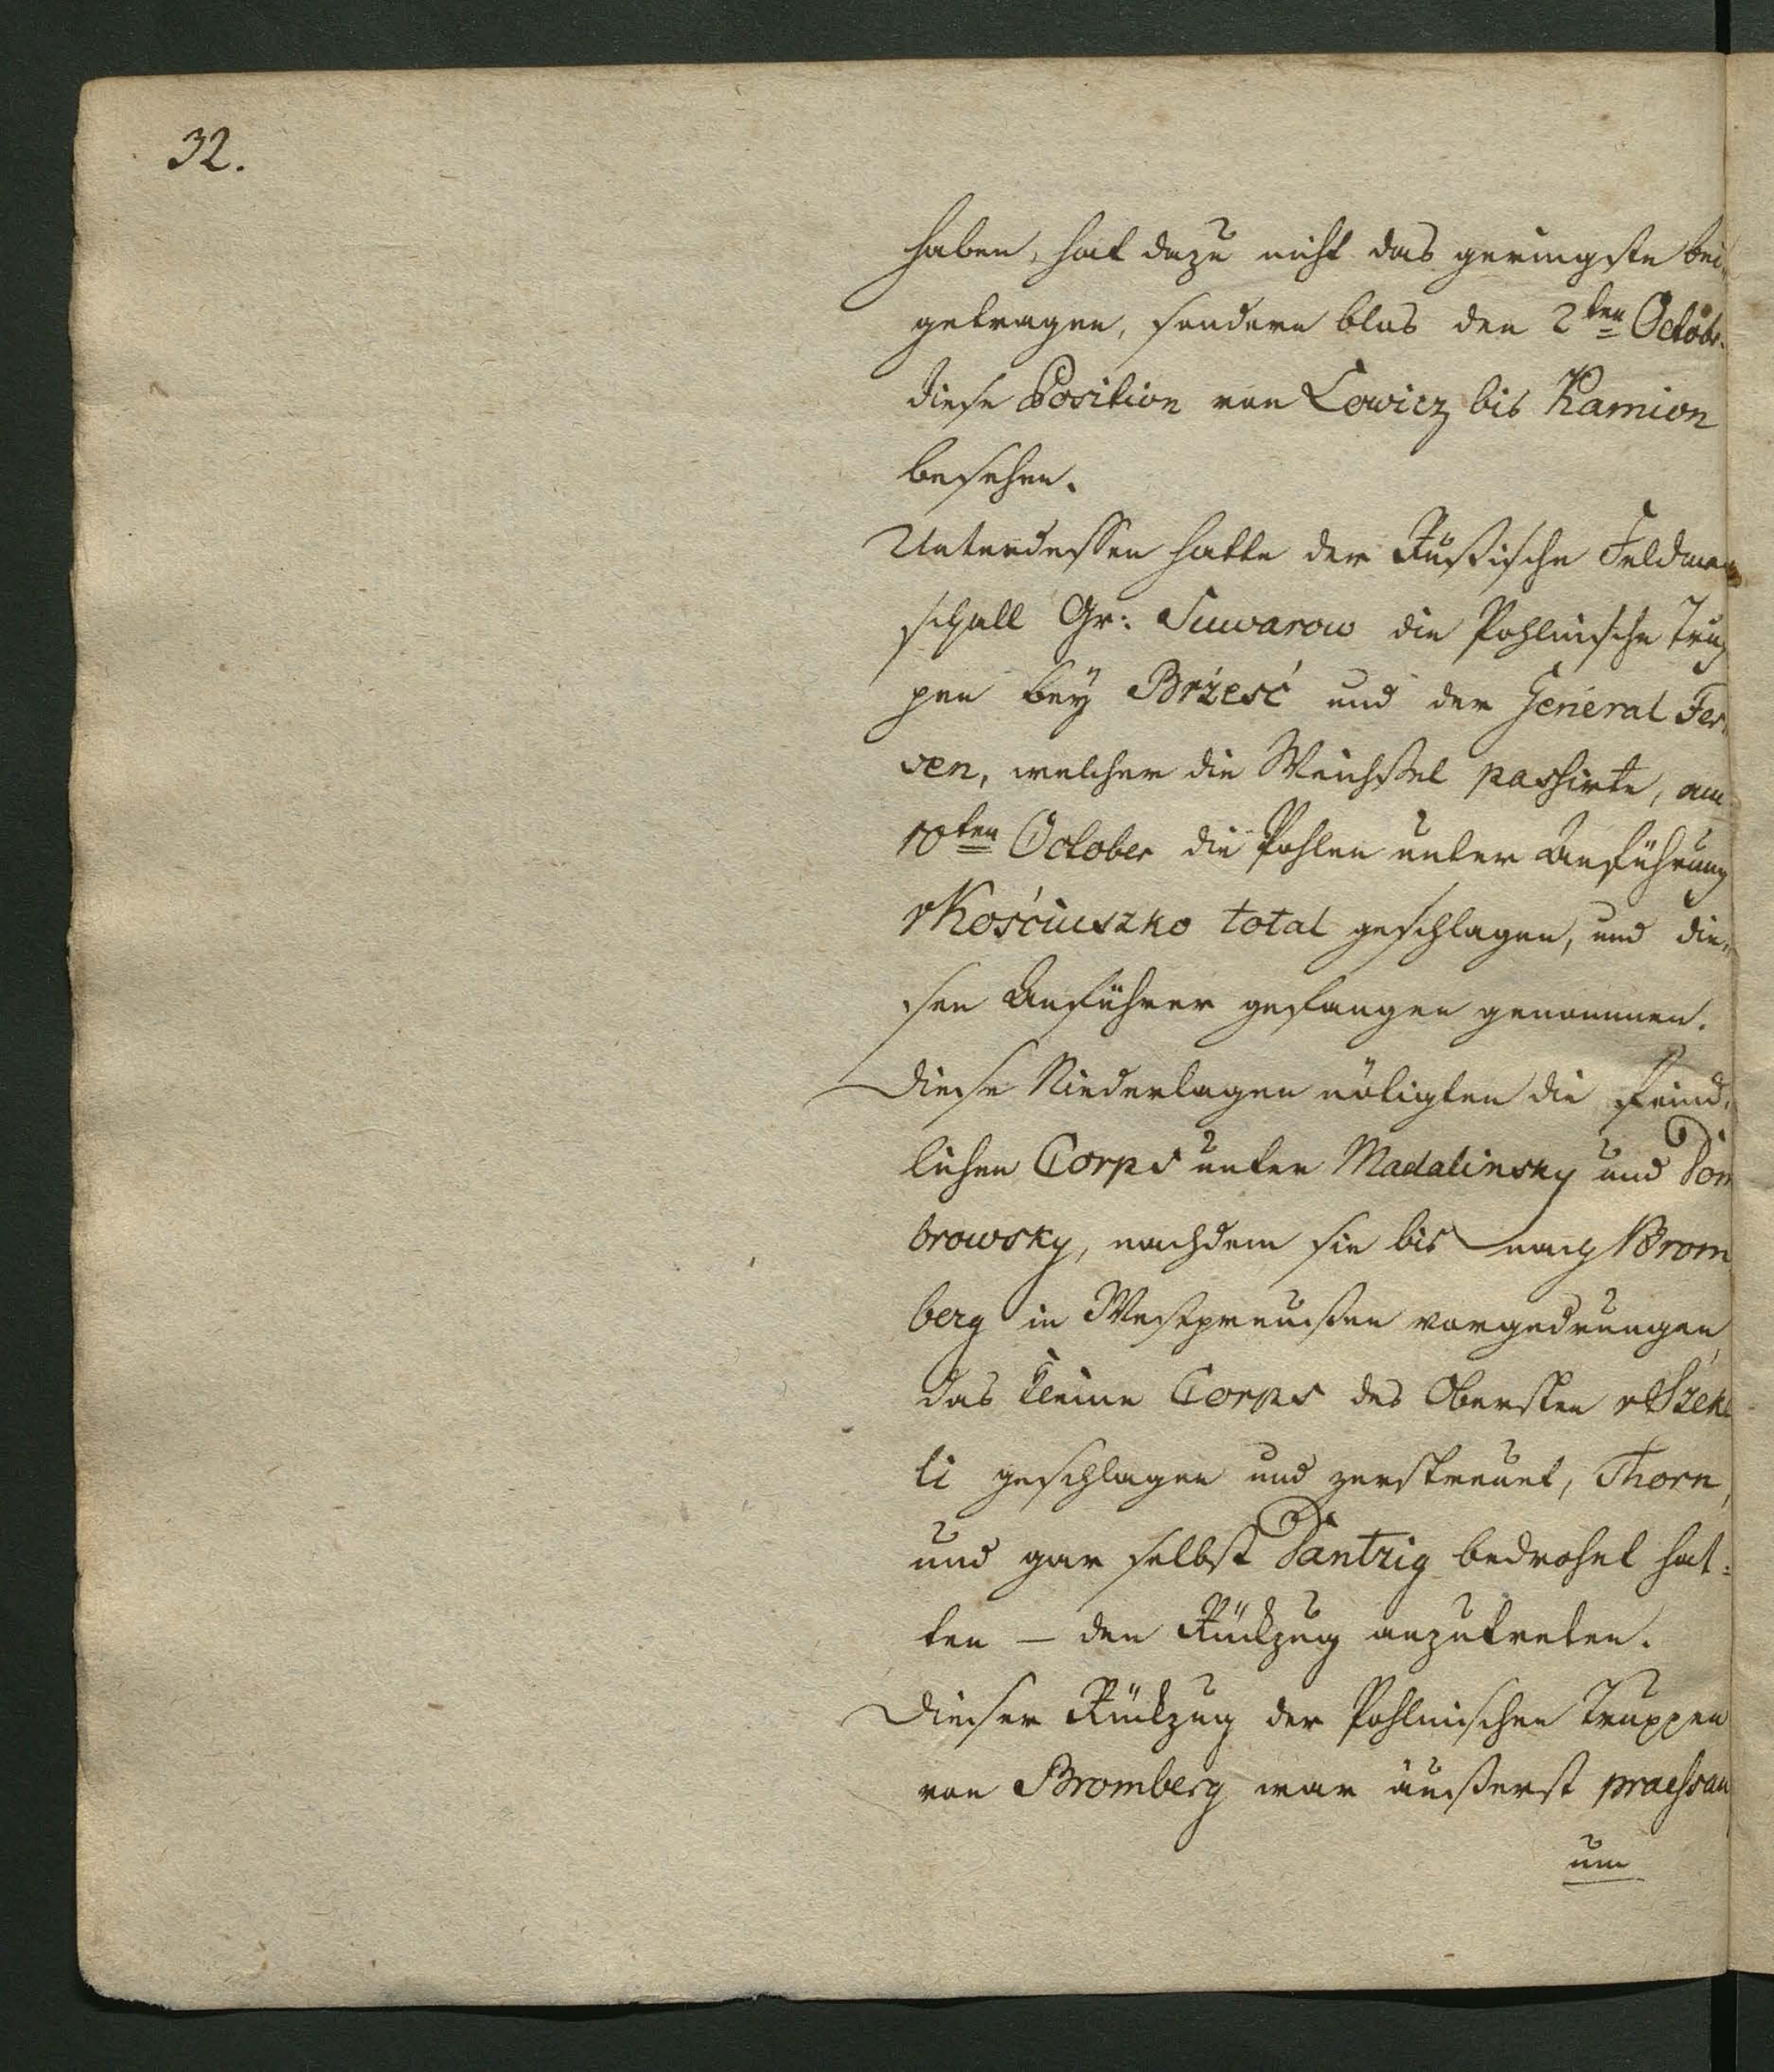 32.
haben, hat dazu nicht das geringste bei-
getragen, sondern blos den 2ten Octobr.
diese Position von Lowicz bis Kamion
besehen.
Unterdessen hatte der Rußische Feldmar
schall Gr: Suwarow die Pohlnische Trup
pen bey Brześć und der General Fer-
sen, welcher die Weichsel passirte, am
10ten October die Pohlen unter Anführung
v Kosciuszko total geschlagen, und die-
sen Anführer gefangen genommen.
Diese Niederlagen nötigten die feind-
lichen Corps unter Madalinsky und Dom
browsky, nachdem sie bis nach Brom
berg in Westpreußen vorgedrungen,
das kleine Corps des Obersten v Szek
li geschlagen und zerstreuet, Thorn,
und gar selbst Dantzig bedrohet hat-
ten – den Rückzug anzutreten.
Dieser Rückzug der Pohlnischen Truppen
von Bromberg war äußerst praessan
um